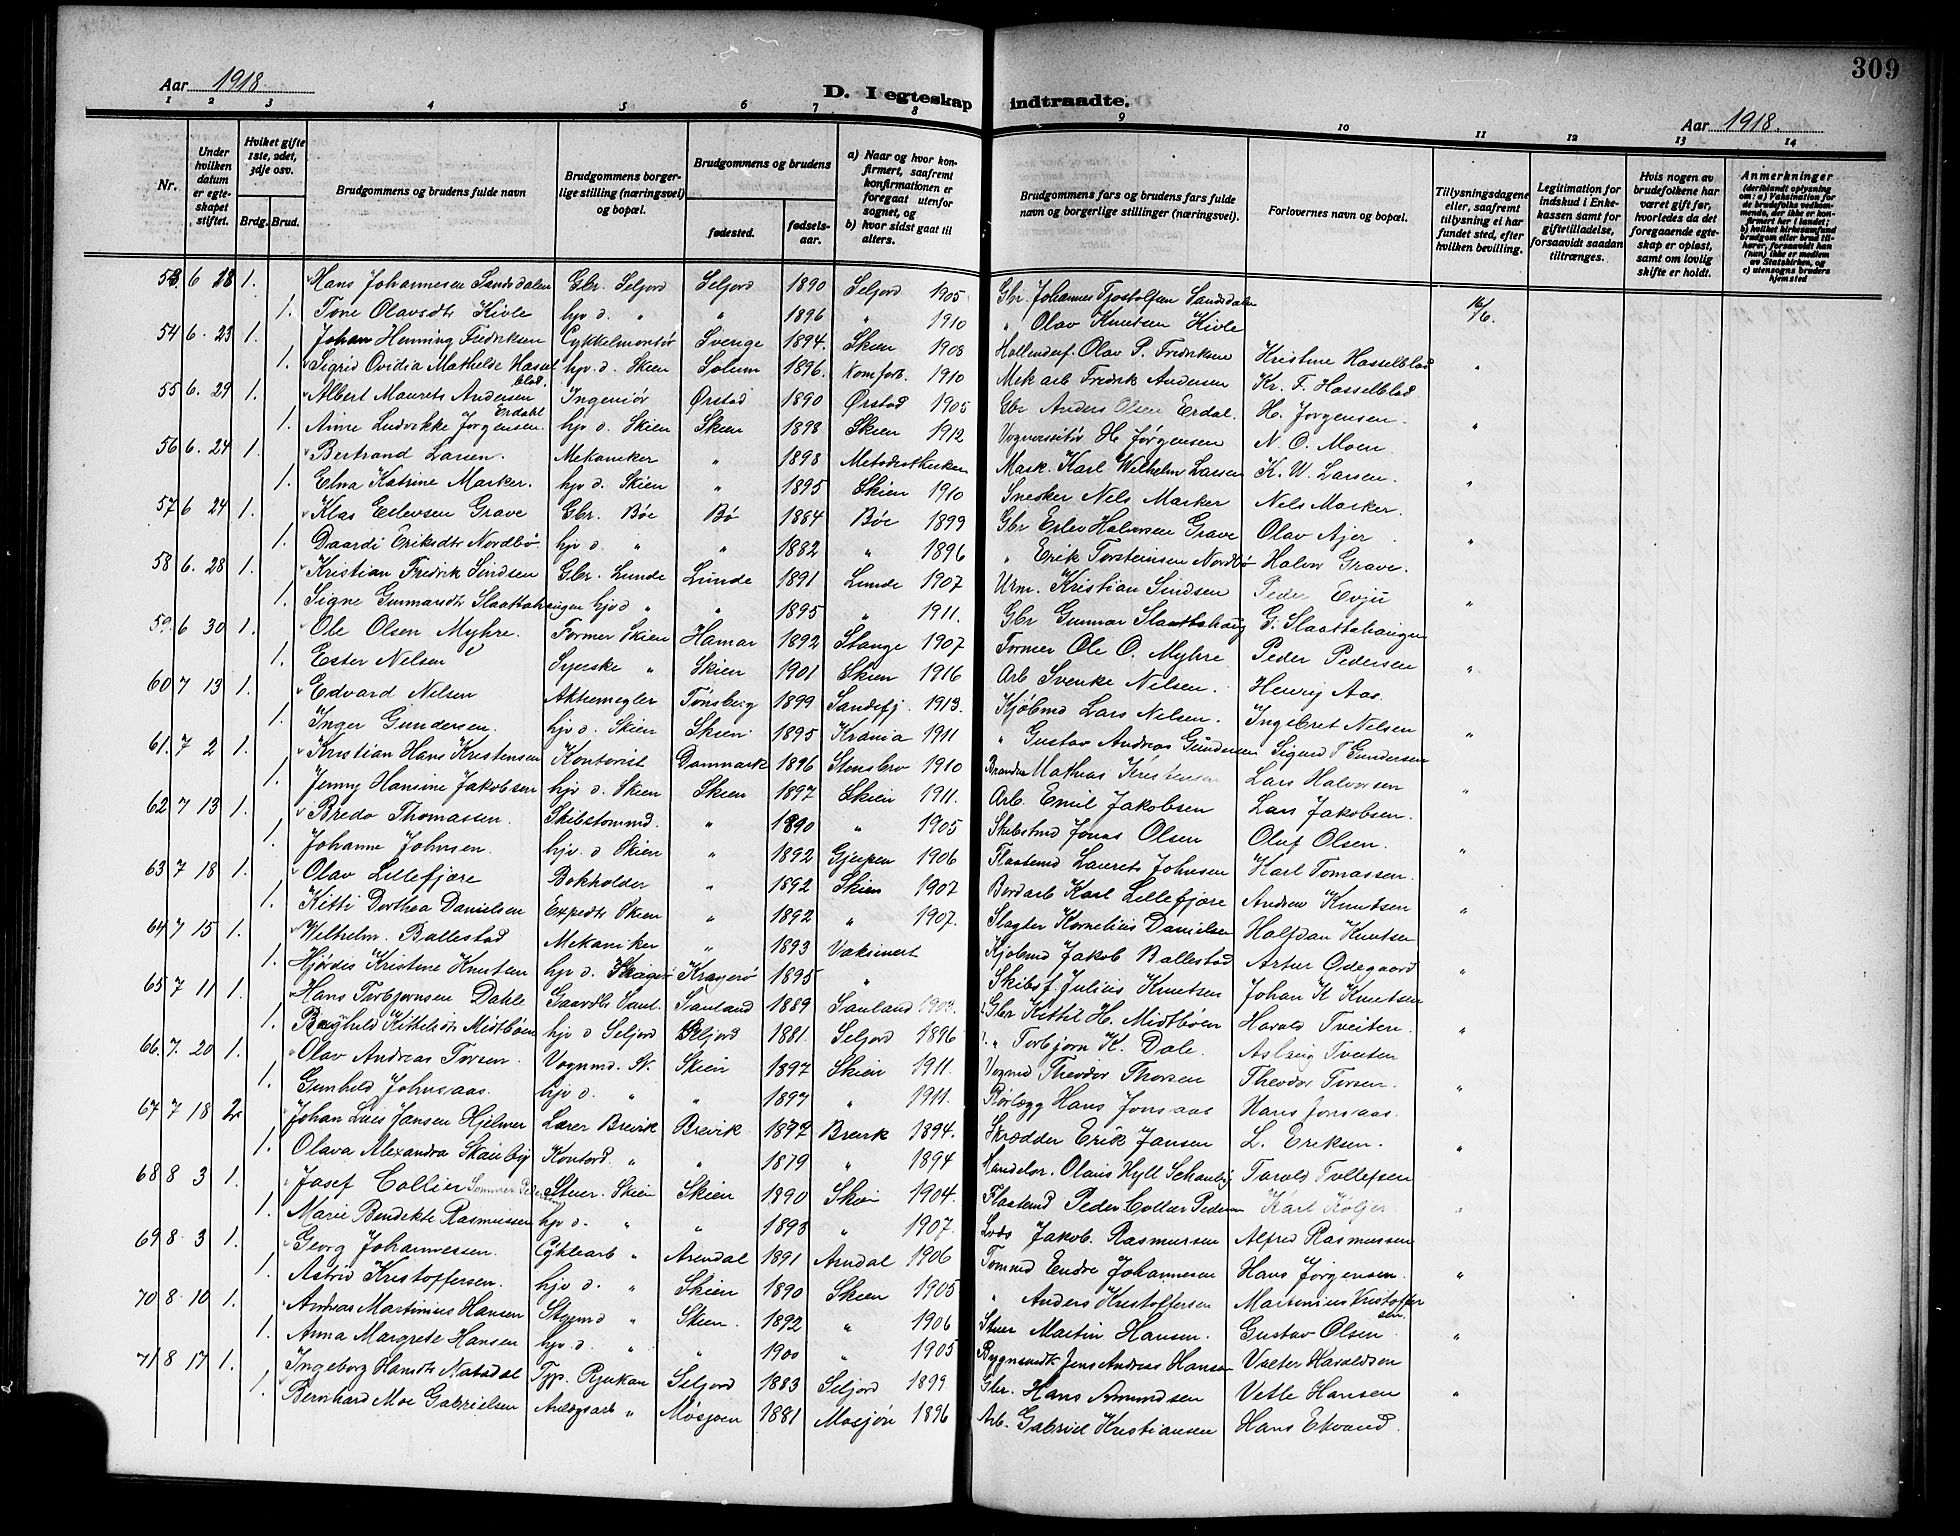 309
Aar 1918.
D. I egteskap indtraadte.
Aar 1918.
1 2 3 4 5 6 7 8 9 10 11 12 13 14
Nr.
Under hvilken datum er egteskapet stiftet.
Hvilket gifte 1ste, 2det, 3dje osv.
Brdg. Brud.
Brudgommens og brudens fulde navn
Brudgommens borgerlige stilling (næringsvei) og bopæl.
Brudgommens og brudens
fødested. fødselsaar.
a) Naar og hvor konfirmert, saafremt konfirmationen er foregaat utenfor sognet, og
b) hvor sidst gaat til alters.
Brudgommens fars og brudens fars fulde navn og borgerlige stillinger (næringsvei).
Forlovernes navn og bopæl.
Tillysningsdagene eller, saafremt tillysning ei har fundet sted, efter hvilken bevilling.
Legitimation for indskud i Enkekassen samt for giftetilladelse, forsaavidt saadan tiltrænges.
Hvis nogen av brudefolkene har været gift før, hvorledes da det foregaaende egteskap er opløst, samt om lovlig skifte er holdt.
Anmerkninger
(deriblandt oplysning om: a) Vaksination for de brudefolks vedkommende, der ikke er konfirmert her i landet; b) hvilket kirkesamfund brudgom eller brud tilhører, forsaavidt han (hun) ikke er medlem av Statskirken, og c) utensogns bruders hjemsted
53. 6 23 1. Hans Johannesen Sandsdalen Gbr. Seljord Seljord 1890 Seljord 1905 Gbr. Johannes Tjostolfsen Sandsdalen 16/6.
1. Tone Olavsdtr Kivle hjv d. " " 1896 " 1910 " Olav Knutsen Kivle
54 6. 23 1. Johan Henning Fredriksen Cykkelmontør Sverige 1894. Skien 1908 Olav P. Fredriksen Kristine Hasselblad "
1. Sigrid Ovidia Mathilde Hasselblad. hjv. d. Skien Solum 1896. Komforb. 1910 Mek arb Fredrik Andersen Kr. F. Hasselblad
55 6. 29 1. Albert Maurets Andersen Erdahl Ingeniør Ørstad 1890 Ørstad 1905 Gbr Anders Olsen Erdal. H. Jørgensen. "
1. Anne Ludvikke Jørgensen. hjv d. Skien Skien 1898 Skien 1912 H. Jørgensen N. O. Moen.
56 6. 24 1. Bertrand Larsen. Mekaniker " 1898 Metodistkirken Mask. Karl Wilhelm Larsen K. W. Larsen. "
1. Elna Katrine Marker. hjv d. Skien " 1895 Skien 1910 Snekker Nels Marker Nels Marker.
57 6 24 1. Klas Eslevsen Grave Gbr. Bøe Bø 1884 Bøe 1899 Gbr Eslev Halvorsen Grave Olav Ajer "
1. Daardi Eriksdtr Nordbø. hjv d. " " 1882 " 1896 " Erik Torsteinsen Nordbø Halvor Grave.
58 6. 28 1. Kristian Fredrik Sindsen Gbr. Lunde Lunde 1891 Lunde 1907 Urm. Kristian Sindsen Peder Evju "
1. Signe Gunnarsdtr Slaattahaugen hjv d " " 1895 " 1911. Gbr Gunnar Slaattahaug G. Slaattahaugen
59 6 30 1. Ole Olsen Myhre. Former Skien Hamar 1892 Stange 1907 Former Ole O. Myhre Peder Pedersen "
1. Ester Nelsen Syerske " Skien 1901 Skien 1916 Arb Svenke Nelsen. Henry Aas.
60 7 13 1. Edvard Nelsen Aktiemegler Tønsberg 1899 Sandefj. 1913. Kjøbmd Lars Nelsen. Ingebret Nelsen "
1. Inger Gundersen. hjv d. Skien Skien 1895 Krania 1911 " Gustav Andreas Gundersen Sigurd T Gundersen
61. 7 2 1. Kristian Hans Kristensen Kontorist Danmark 1896 Stensbro 1910 Mathias Kristensen Lars Halvorsen "
1. Jenny Hansine Jakobsen hjv d. Skien Skien 1897 Skien 1911. Arb. Emil Jakobsen Lars Jakobsen.
62 7 13 1. Bredo Thomassen. Skibstømmd. " 1890 " 1905 Skibstmd Jonas Olsen Oluf Olsen. "
1. Johanne Johnsen. hjv. d Skien " 1892 Gjerpen 1906 Flaatemd Laurets Johnsen Karl Tomassen.
63 7 18 1. Olav Lillefjære Bokholder " 1892 Skien 1907 Bordarb Karl Lillefjære Andrew Knudsen "
1. Kitti Dorthea Danielsen Expedtr Skien " 1892 " 1907. Slagter Kornelius Danielsen Halfdan Knutsen
64 7 15 1. Wilhelm Ballestad Mekaniker " 1893 Vaksinert Kjøbmd Jakob Ballestad Artur Ødegaard "
1. Hjørdis Kristine Knutsen hjv d. Kragerø 1895 " Skibsf. Julius Knutsen Johan K Knutsen
65 7 11 1. Hans Torbjørnsen Dahle Gaardbr Saul. Sauland 1889 Sauland 1903. Gbr Kittil H. Midtbøen Harald Tveiten. "
1. Bergheld Kittelsdtr Midtbøen hjv d Seljord Seljord 1881. Seljord 1896 " Torbjørn K. Dale. Aslaug Tveiten
66. 7. 20 1. Olav Andreas Torsen. Vognmd. Sk. Skien 1897 Skien 1911. Vognmd Theodor Thorsen Theodor Torsen. "
1. Gunhild Johnsaas. hjv d. " " 1897 " 1911. Rørlægg Hans Jonsaas Hans Jonsaas.
67 7 18 2. Johan Lues Jansen Hjelmer Lærer Brevik Brevik 1877 Brevik 1894. Skrædder Erik Jansen L. Eriksen. "
1. Olava Alexandra Skauby Kontord. " " 1879 " 1894 Handelsr. Olaus Hyll Schauby Tarald Tollefsen
68 8 3 1. Josef Collier Sommer Pedersen Stuer. Skien Skien 1890 Skien 1904. Flaatemd Peder Collier Pedersen Karl Koljer "
1. Marie Bendikte Rasmussen hjv d. " " 1893 " 1907. Lods Jakob. Rasmussen Alfred Rasmussen
69 8 3 1. Georg Johannessen. Cyklearb " Arendal 1891 Arndal 1906 Tømmd Endre Johannesen Hans Jørgensen. "
1. Astrid Kristoffersen. hjv d. " Skien 1890 Skien 1905 " Anders Kristoffersen Martinius Kristoffersen.
70 8. 10 1. Andreas Martinius Hansen Styrmd " Skien. 1892 " 1906 Stuer Martin Hansen. Gustav Olsen "
1. Anna Margrete Hansen hjv d. " " 1900 " 1905 Jens Andreas Hansen Valter Haraldsen
71 8 17 1. Ingeborg Hansdtr Natadal Typ. Rjukan Seljord 1883 Seljord 1899 Gbr. Hans Amundsen Vetle Hansen "
1. Bernhard Moe Gabrielsen Anlegsarb " Mosjøen 1881 Mosjøn 1896 Arb. Gabriel Kristiansen Hans Ekrand.